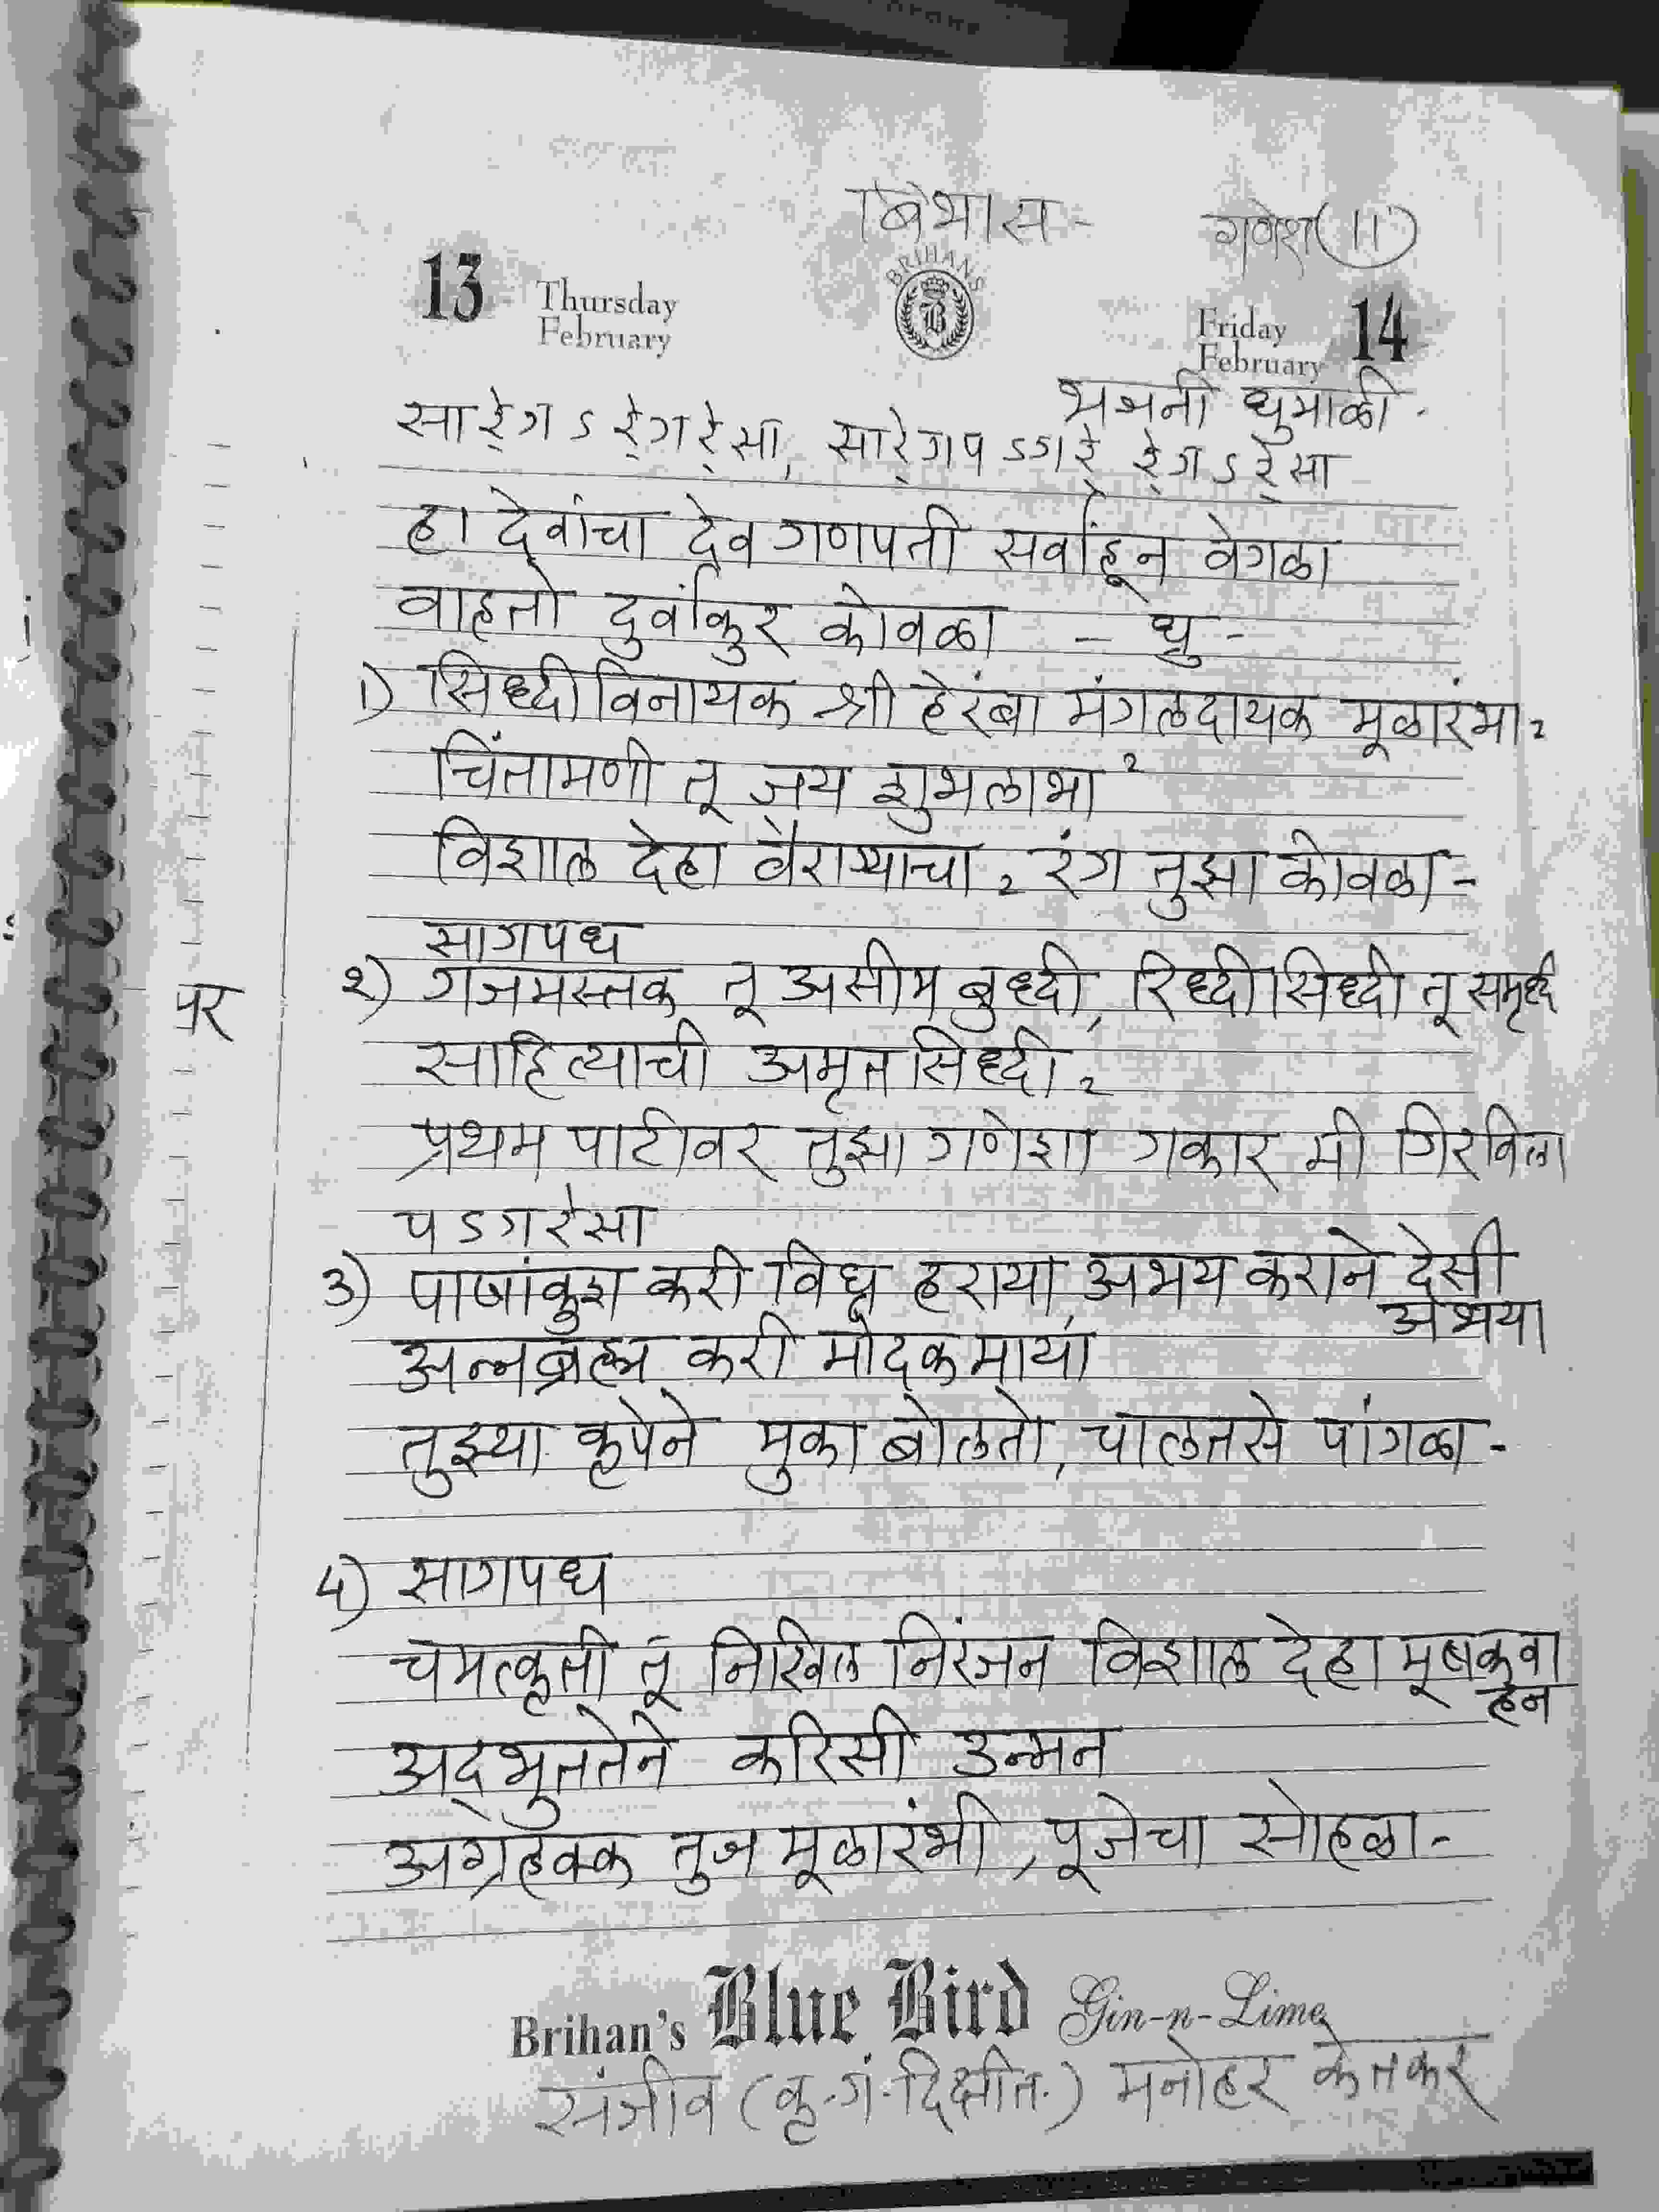 बिभास - गणेश (11)
BRIHANS
13 Thursday February
B
Friday February 14
भजनी धुमाळी.
सारे॒ग ऽ रे॒गरे॒सा, सारे॒गप ऽगरे॒ रे॒ग ऽ रे॒सा
हा देवांचा देव गणपती सर्वांहून वेगळा
वाहतो दुर्वांकुर कोवळा - धृ -
1) सिध्दीविनायक श्री हेरंबा मंगलदायक मूळारंभा २
चिंतामणी तू जय शुभलाभा २
विशाल देहा वैराग्याचा २ रंग तुझा कोवळा -
सागपध
पर २) गजमस्तक तू असीम बुध्दी, रिध्दी सिध्दी तू समृध्दी
साहित्याची अमृत सिध्दी २
प्रथम पाटीवर तुझा गणेशा गकार मी गिरविला
प ऽ ग रेसा
3) पाषांकुश करी विघ्न हराया अभय कराने देसी
अभया
अन्नब्रह्म करी मोदक माया
तुझ्या कृपेने मुका बोलतो, चालतसे पांगळा -
4) सागपध
चमत्कृती तू निखिल निरंजन विशाल देहा मूषकवा
हन
अद्भुततेने करिसी उन्मन
अग्रहक्क तुज मूळारंभी, पूजेचा सोहळा -
Brihan's Blue Bird Gin-n-Lime
संजीव (कृ. गं. दिक्षीत.) मनोहर केतकर